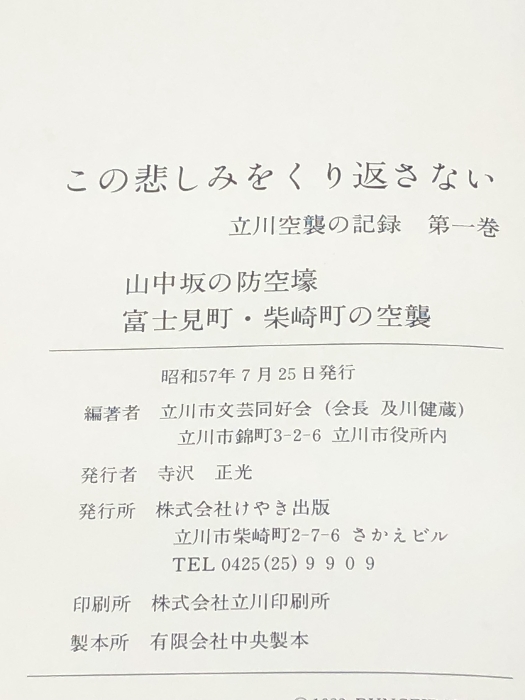 この悲しみをくり返さない
立川空襲の記録　第一巻
山中坂の防空壕
富士見町・柴崎町の空襲
昭和57年7月25日発行
編著者　立川市文芸同好会（会長　及川健蔵）
立川市錦町3-2-6　立川市役所内
発行者　寺沢　正光
発行所　株式会社けやき出版
立川市柴崎町2-7-6　さかえビル
TEL 0425(25)9909
印刷所　株式会社立川印刷所
製本所　有限会社中央製本